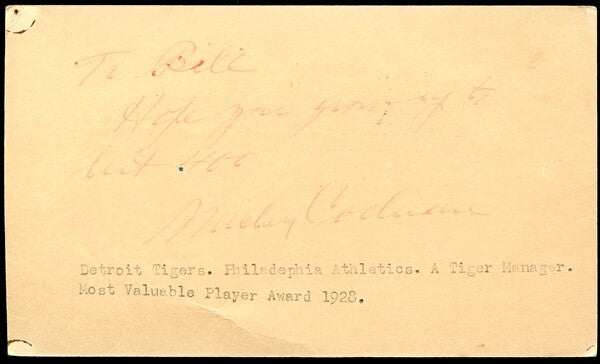 To Bill
Hope you grow up to
hit .400
Mickey Cochrane
Detroit Tigers. Philadephia Athletics. A Tiger Manager.
Most Valuable Player Award 1928.